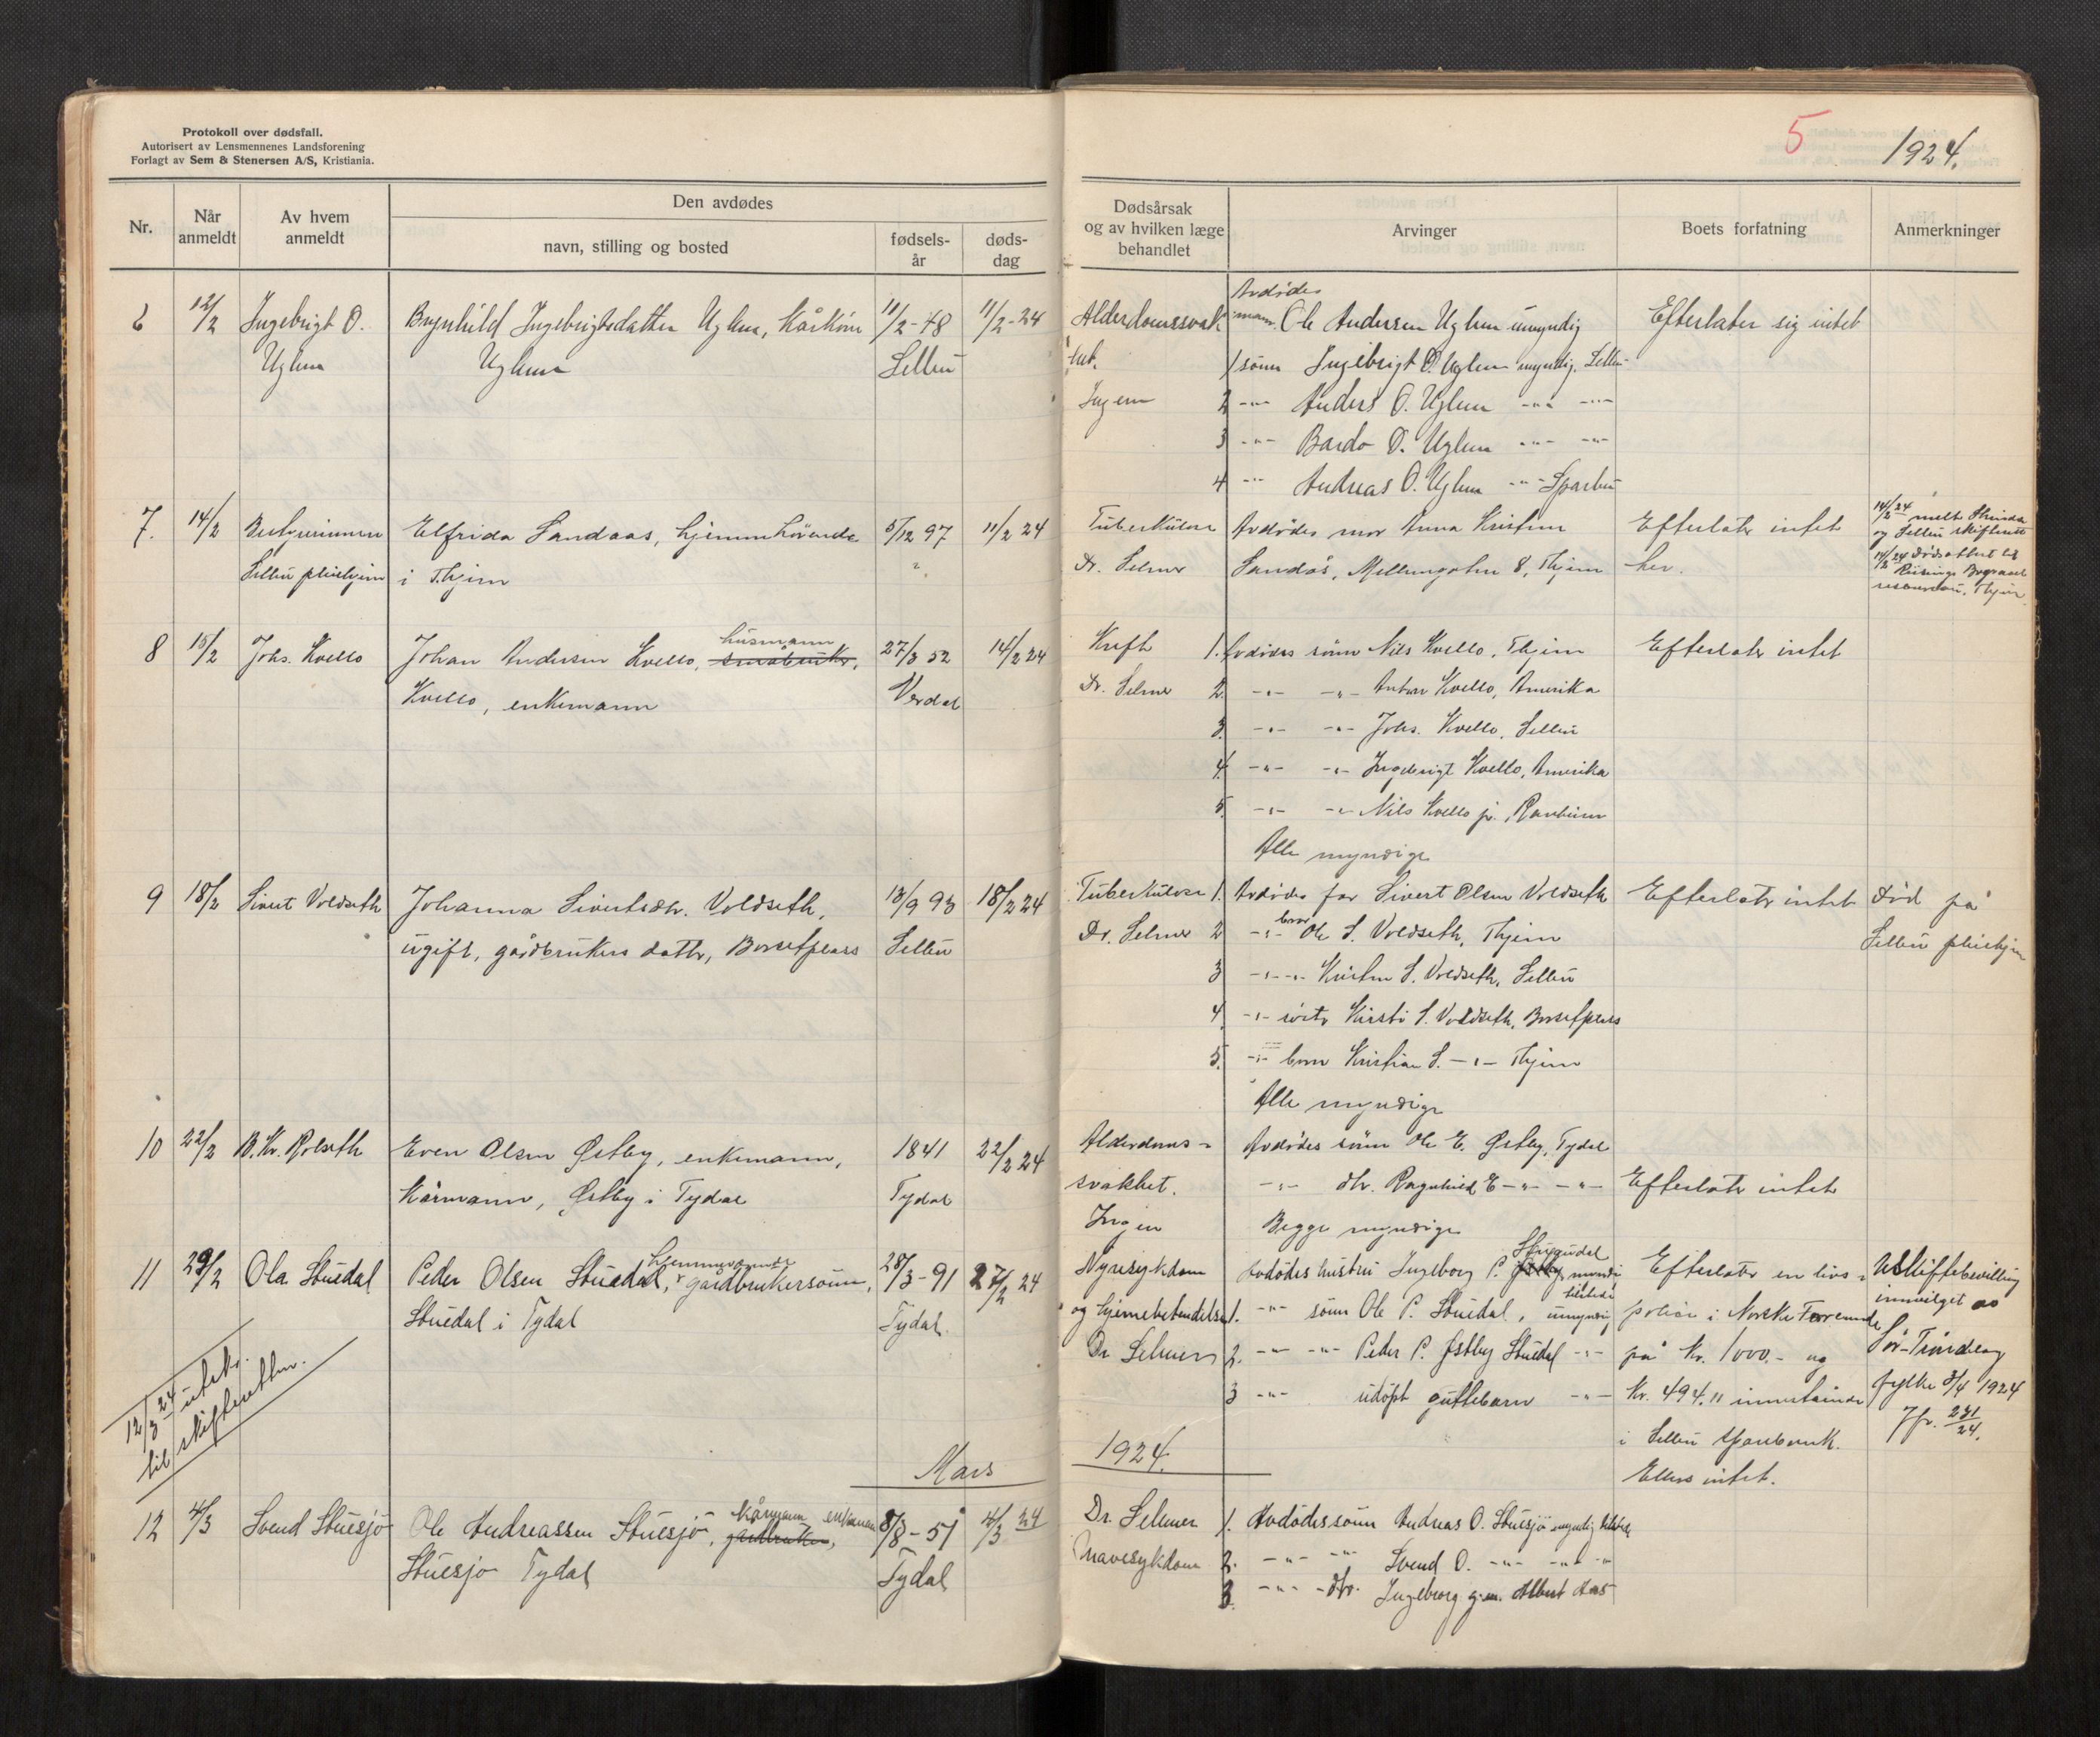 Protokoll over dødsfall.
Autorisert av Lensmennenes Landsforening
Forlagt av Sem & Stenersen A/S, Kristiania.
Nr.
Når anmeldt
Av hvem anmeldt
Den avdødes
navn, stilling og bosted
fødsels-år
døds-dag
6 12/2 Ingebrigt O. Brynhild Ingebrigtsdatter Uglem, Kårkone 11/2-48 11/2-24
Uglem Uglem Selbu
7. 14/2 Bestyrerinnen Elfrida Sandaas, hjemmehörende 5/12 97 11/2 24
Selbu pleiehjem i Thjem
8 15/2 Johs. Kvello Johan Andersen Kvello, husmann småbruker, 27/3 52 14/2 24
Kvello, enkemann Verdal
9 18/2 Sivert Voldseth Johanna Sivertsdtr. Voldseth, 13/9 93 18/2 24
ugift, gårdbrukers datter, Borsetplass Selbu
10 22/2 B. Kr. Rolseth Even Olsen Østby, enkemann, 1841 22/2 24
Kårmann, Østby i Tydal Tydal
11 29/2 Ola Stuedal Peder Olsen Stuedal, hjemmeværende gårdbrukersönn, 28/3-91 27/2 24
Stuedal i Tydal Tydal.
12/3 24 utskr.
til skifteretten.
Mars
12 4/3 Svend Stuesjö Ole Andreassen Stuesjö, Kårmann enkemann gårdbruker, 8/8-51 4/3 24
Stuesjö Tydal Tydal
5 1924.
Dødsårsak
og av hvilken læge
behandlet
Arvinger
Boets forfatning
Anmerkninger
Avdödes
Alderdomssvak- mann Ole Andersen Uglem umyndig Efterlater sig intet
het. 1 sönn Ingebrigt O. Uglem myndig. Selbu
Ingen 2 -"- Anders O. Uglem -"- -"-
3 -"- Bardo O. Uglem -"- -"-
4 -"- Andreas O. Uglem -"- Sparbu
Tuberkulose Avdödes mor Anna Kristine Efterlater intet 14/2 24 melt Strinda
og Selbu skifterett
Dr. Selmer Sandås, Mellemgaten 8, Thjem her. 14/2 24 dödsattest til
Begravel
Thjem
Kreft 1. Avdödes sönn Nils Kvello, Thjem Efterlater intet
Dr. Selmer 2. -"- -"- Anton Kvello, Amerika
3. -"- -"- Johs. Kvello, Selbu
4. -"- -"- Ingebrigt Kvello, Amerika
5. -"- -"- Nils Kvello jr., Ranheim
Alle myndige
Tuberkulose 1. Avdödes far Sivert Olsen Voldseth Efterlater intet Död på
Dr. Selmer 2 -"- bror Ole S. Voldseth, Thjem Selbu pleiehjem
3 -"- -"- Kristen S. Voldseth, Selbu
4. -"- söster Kirsti S. Voldseth, Borsetplass
5. -"- bror Kristian S. -"- Thjem
Alle myndige
Alderdoms- Avdödes sönn Ole E. Østby, Tydal
svakhet. -"- dtr. Ragnhild E -"- -"- Efterlater intet
Ingen Begge myndige
Nyresykdom Avdödes hustru Ingeborg P. Stuedal Østby myndig Efterlater en livs- Uskiftebevilling
og hjernebetendelse 1. -"- sönn Ole P. Stuedal, umyndig polise i Norske Forenede innvilget av
Dr Selmer 2. -"- -"- Peder P. Østby Stuedal -"- på kr. 1000.- og Sör-Tröndelag
3 -"- udöpt guttebarn -"- kr. 494.11 innestående fylke 3/4 1924
i Selbu Sparebank. Jfr. 231/24.
1924. Ellers intet.
Dr. Selmer 1. Avdödes sönn Andreas O. Stuesjö myndig
Mavesykdom 2. -"- -"- Svend O. -"- -"- -"-
3. -"- -dtr. Ingeborg g.m. Albert Aas